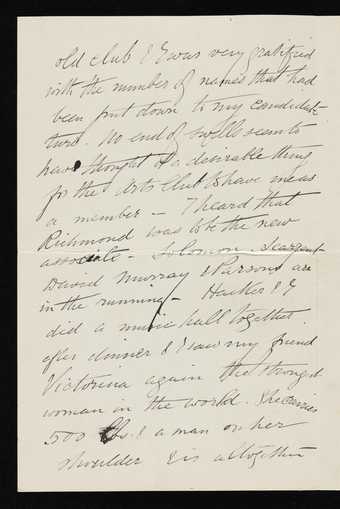 old club & I was very gratified
with the number of names that had
been put down to my candidate-
ture. No end of swells seem to
have thought it a desirable thing
for the Arts Club to have me as
a member — I heard that
Richmond was to be the new
associate — Solomon, Seargent
David Murray & Parsons are
in the running — Hacker & I
did a music hall together
after dinner & I saw my friend
Victorina again the strongest
woman in the world. She carries
500 lbs. & a man on her
shoulder & is altogether